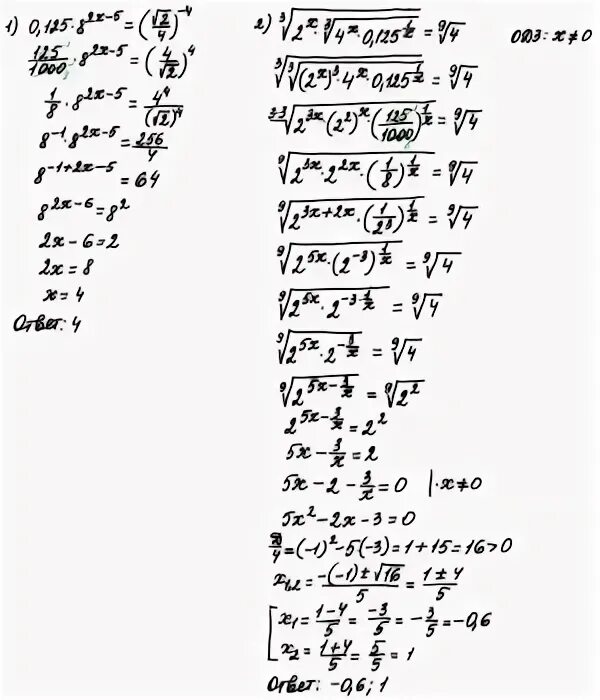 1) 0,125·8^(2x-5) = (√2/4)^(-4)
125/1000·8^(2x-5) = (4/√2)^4
1/8·8^(2x-5) = 4^4/(√2)^4
8^(-1)·8^(2x-5) = 256/4
8^(-1+2x-5) = 64
8^(2x-6) = 8^2
2x-6=2
2x=8
x=4
Ответ: 4
2) ∛(2^x·∛(4^x·0,125^(1/x))) = ⁹√4 ОДЗ: x≠0
∛(∛((2^x)^3·4^x·0,125^(1/x))) = ⁹√4
³·³√(2^(3x)·(2^2)^x·(125/1000)^(1/x)) = ⁹√4
⁹√(2^(3x)·2^(2x)·(1/8)^(1/x)) = ⁹√4
⁹√(2^(3x+2x)·(1/2^3)^(1/x)) = ⁹√4
⁹√(2^(5x)·(2^(-3))^(1/x)) = ⁹√4
⁹√(2^(5x)·2^(-3·1/x)) = ⁹√4
⁹√(2^(5x)·2^(-3/x)) = ⁹√4
⁹√(2^(5x-3/x)) = ⁹√(2^2)
2^(5x-3/x) = 2^2
5x-3/x=2
5x-2-3/x=0 |·x≠0
5x²-2x-3=0
D/4=(-1)²-5(-3)=1+15=16>0
x1,2=(-(-1)±√16)/5=(1±4)/5
[x1=(1-4)/5=-3/5=-3/5=-0,6
x2=(1+4)/5=5/5=1
Ответ: -0,6; 1